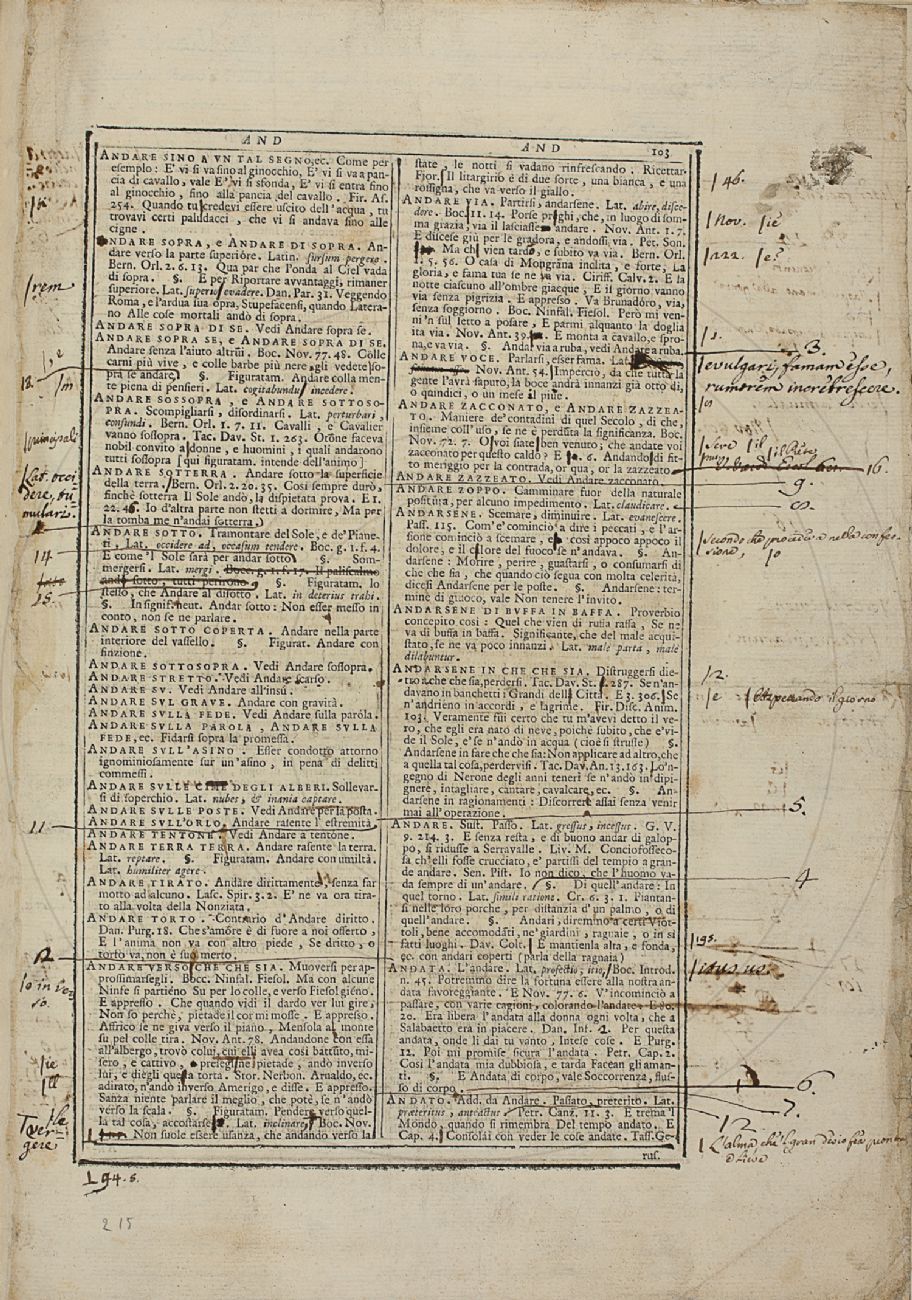 AND
AND
103
ANDARE SINO A VN TAL SEGNO, ec. Come per
esempio: E' vi si va sino al ginocchio, E' vi si va a pan-
cia di cavallo, vale E' vi si sfonda, E' vi si entra sino
al ginocchio, sino alla pancia del cavallo. Fir. As.
254. Quando tu credevi essere uscito dell'acqua, tu
trovavi certi paludacci, che vi si andava sino alle
cigne.
ANDARE SOPRA, e ANDARE DI SOPRA. An-
dare verso la parte superiore. Latin. sursum pergere.
Bern. Orl. 2. 6. 13. Qua par che l'onda al Ciel vada
di sopra. §. E per Riportare avvantaggi, rimaner
superiore. Lat. evadere. Dan. Par. 31. Veggendo
Roma, e l'ardua sua opra, Stupefacensi, quando Latera-
no Alle cose mortali andò di sopra.
ANDARE SOPRA DI SE. Vedi Andare sopra se.
ANDARE SOPRA SE, e ANDARE SOPRA DI SE.
Andare senza l'aiuto altrui. Boc. Nov. 77. 48. Colle
carni più vive, e colle barbe più nere gli vedete so-
pra se andare. §. Figuratam. Andare colla men-
te piena di pensieri. Lat. cogitabundus incedere.
ANDARE SOSSOPRA, e ANDARE SOTTOSO-
PRA. Scompigliarsi, disordinarsi. Lat. perturbari,
confundi. Bern. Orl. 1. 7. 11. Cavalli, e Cavalier
vanno sossopra. Tac. Dav. St. 1. 263. Otone faceva
nobil convito a donne, e huomini, i quali andarono
tutti sossopra [qui figuratam. intende dell'animo]
ANDARE SOTTERRA. Andare sotto la superficie
della terra. Bern. Orl. 2. 20. 35. Così sempre durò,
finchè sotterra Il Sole andò, la dispietata prova. E 1.
22. 46. Io d'altra parte non stetti a dormire, Ma per
la tomba me n'andai sotterra.
ANDARE SOTTO. Tramontare del Sole, e de' Piane-
ti. Lat. occidere ad, occasum tendere. Boc. g. 1. f. 4.
E come 'l Sole sarà per andar sotto. §. Som-
mergersi. Lat. mergi. Bocc. g. 1. f. 17. Il paliscalmo
andò sotto, tutti perirono. §. Figuratam. lo
stesso, che Andare al disotto. Lat. in deterius trahi.
§. In signif. neut. Andar sotto: Non esser messo in
conto, non se ne parlare.
ANDARE SOTTO COPERTA. Andare nella parte
interiore del vassello. §. Figurat. Andare con
finzione.
ANDARE SOTTOSOPRA. Vedi Andare sossopra.
ANDARE STRETTO. Vedi Andare scarso.
ANDARE SV. Vedi Andare all'insù.
ANDARE SVL GRAVE. Andare con gravità.
ANDARE SVLLA FEDE. Vedi Andare sulla parola.
ANDARE SVLLA PAROLA, ANDARE SVLLA
FEDE, ec. Fidarsi sopra la promessa.
ANDARE SVLL'ASINO. Esser condotto attorno
ignominiosamente sur un'asino, in pena di delitti
commessi.
ANDARE SVLLE CIME DEGLI ALBERI. Sollevar-
si di soperchio. Lat. nubes, & inania captare.
ANDARE SVLLE POSTE. Vedi Andare per la posta.
ANDARE SVLL'ORLO. Andare rasente l'estremità.
ANDARE TENTONE. Vedi Andare a tentone.
ANDARE TERRA TERRA. Andare rasente la terra.
Lat. reptare. §. Figuratam. Andare con umiltà.
Lat. humiliter agere.
ANDARE TIRATO. Andare dirittamente, senza far
motto ad alcuno. Lasc. Spir. 3. 2. E' ne va ora tira-
to alla volta della Nonziata.
ANDARE TORTO. Contrario d'Andare diritto.
Dan. Purg. 18. Che s'amore è di fuore a noi offerto,
E l'anima non va con altro piede, Se dritto, o
torto va, non è suo merto.
ANDARE VERSO CHE CHE SIA. Muoversi per ap-
prossimarsegli. Bocc. Ninfal. Fiesol. Ma con alcune
Ninfe si partiéno Su per lo colle, e verso Fiesol giéno.
E appresso. Che quando vidi il dardo ver lui gire,
Non so perchè, pietade il cor mi mosse. E appresso.
Affrico se ne giva verso il piano, Mensola al monte
su pel colle tira. Nov. Ant. 78. Andandone con essa
all'albergo, trovò colui, cui elli avea così battuto, mi-
sero, e cattivo, e presegline pietade, andò inverso
lui, e diegli questa torta. Stor. Nerbon. Arnaldo, ec.
adirato, n'andò inverso Amerigo, e disse. E appresso.
Sanza niente parlare il meglio, che potè, se n'andò
verso la scala. §. Figuratam. Pendere verso quel-
la tal cosa, accostarsele. Lat. inclinare. Boc. Nov.
Non suole essere usanza, che andando verso la
state, le notti si vadano rinfrescando. Ricettar.
Fior. Il litargirio è di due sorte, una bianca, e una
rossigna, che va verso il giallo.
ANDARE VIA. Partirsi, andarsene. Lat. abire, disce-
dere. Boc. 11. 14. Porse prieghi, che, in luogo di som-
ma grazia, via il lasciasse andare. Nov. Ant. 1. 7.
E discese giù per le gradora, e andossi via. Pet. Son.
Ma chi vien tardo, e subito va via. Bern. Orl.
1. 5. 56. O casa di Mongrana inclita, e forte, La
gloria, e fama tua se ne va via. Ciriff. Calv. 2. E la
notte ciascuno all'ombre giacque, E il giorno vanno
via senza pigrizia. E appresso. Va Brunadóro, via,
senza soggiorno. Boc. Ninfal. Fiesol. Però mi ven-
ni 'n sul letto a posare, E parmi alquanto la doglia
ita via. Nov. Ant. 39. E monta a cavallo, e spro-
na, e va via. §. Andar via a ruba, vedi Andare a ruba.
ANDARE VOCE. Parlarsi, esser fama. Lat.
Nov. Ant. 54. Imperciò, da che tutta la
gente l'avrà saputo, la boce andrà innanzi già otto dì,
o quindici, o un mese il piue.
ANDARE ZACCONATO, e ANDARE ZAZZEA-
TO. Maniere de' contadini di quel Secolo, di che,
insieme coll'uso, se ne è perduta la significanza. Boc.
Nov. 72. 7. O voi siate ben venuto; che andate voi
zacconato per questo caldo? E 6. Andando di fit-
to meriggio per la contrada, or qua, or la zazzeato
ANDARE ZAZZEATO. Vedi Andare zacconato.
ANDARE ZOPPO. Camminare fuor della naturale
positura, per alcuno impedimento. Lat. claudicare.
ANDARSENE. Scemare, diminuire. Lat. evanescere.
Pass. 115. Com'e' cominciò a dire i peccati, e l'ar-
sione cominciò a scemare, e così appoco appoco il
dolore, e il calore del fuoco se n'andava. §. An-
darsene: Morire, perire, guastarsi, o consumarsi di
che che sia, che quando ciò segua con molta celerità,
dicesi Andarsene per le poste. §. Andarsene: ter-
mine di giuoco, vale Non tenere l'invito.
ANDARSENE DI BVFFA IN BAFFA. Proverbio
concepito così: Quel che vien di ruffa raffa, Se ne
va di buffa in baffa. Significante, che del male acqui-
stato, se ne va poco innanzi. Lat. male parta, male
dilabuntur.
ANDARSENE IN CHE CHE SIA. Distruggersi die-
tro a che che sia, perdersi. Tac. Dav. St. 1. 287. Se n'an-
davano in banchetti i Grandi della Città. E 3. 306. Se
n'andrieno in accordi, e lagrime. Fir. Disc. Anim.
103. Veramente fui certo che tu m'avevi detto il ve-
ro, che egli era nato di neve, poichè subito, che e' vi-
de il Sole, e' se n'andò in acqua (cioè si strusse) §.
Andarsene in fare che che sia: Non applicare ad altro, che
a quella tal cosa, perdervisi. Tac. Dav. An. 13. 163. Lo 'n-
gegno di Nerone degli anni teneri se n'andò in dipi-
gnere, intagliare, cantare, cavalcare, ec. §. An-
darsene in ragionamenti: Discorrere assai senza venir
mai all'operazione.
ANDARE. Sust. Passo. Lat. gressus, incessus. G. V.
9. 214. 3. E senza resta, e di buono andar di galop-
po, si ridusse a Serravalle. Liv. M. Conciofosseco-
sa ch'elli fosse crucciato, e' partissi del tempio a gran-
de andare. Sen. Pist. Io non dico, che l'huomo va-
da sempre di un'andare. §. Di quell'andare: In
quel torno. Lat. simili ratione. Cr. 6. 3. 1. Piantan-
si nelle loro porche, per distanzia d'un palmo, o di
quell'andare. §. Andari, diremmo a certi Viot-
toli, bene accomodati, ne' giardini, ragnaie, o in sì
fatti luoghi. Dav. Colt. E mantienla alta, e fonda,
ec. con andari coperti (parla della ragnaia)
ANDATA. L'andare. Lat. profectio, itio. Boc. Introd.
n. 45. Potremmo dire la fortuna essere alla nostra an-
data favoreggiante. E Nov. 77. 6. V' incominciò a
passare, con varie cagioni, colorando l'andate. E 80.
20. Era libera l'andata alla donna ogni volta, che a
Salabaetto era in piacere. Dan. Inf. 2. Per questa
andata, onde li dai tu vanto, Intese cose. E Purg.
12. Poi mi promise sicura l'andata. Petr. Cap. 2.
Così l'andata mia dubbiosa, e tarda Facean gli aman-
ti. §. E Andata di corpo, vale Soccorrenza, flus-
so di corpo.
ANDATO. Add. da Andare. Passato, preterito. Lat.
præteritus, anteactus. Petr. Canz. 11. 3. E trema 'l
Mondo, quando si rimembra Del tempo andato. E
Cap. 4. Consolai con veder le cose andate. Tass. Ge-
rus.
rem
12.
principali
Lat. occi
dere, tu
mulari.
14
15.
11
12
Io in ver
so.
ie
ll
Vergere
194. s.
215
146.
Nov. ie
222. e
3.
evulgari, famam esse,
rumorem increbrescere.
16.
9.
8
Secondo che procedea nella confes
sione, 10
12.
e aspettando il giorno
5.
4
195.
6
7.
12
L'alma che 'l gran disio fea pronta